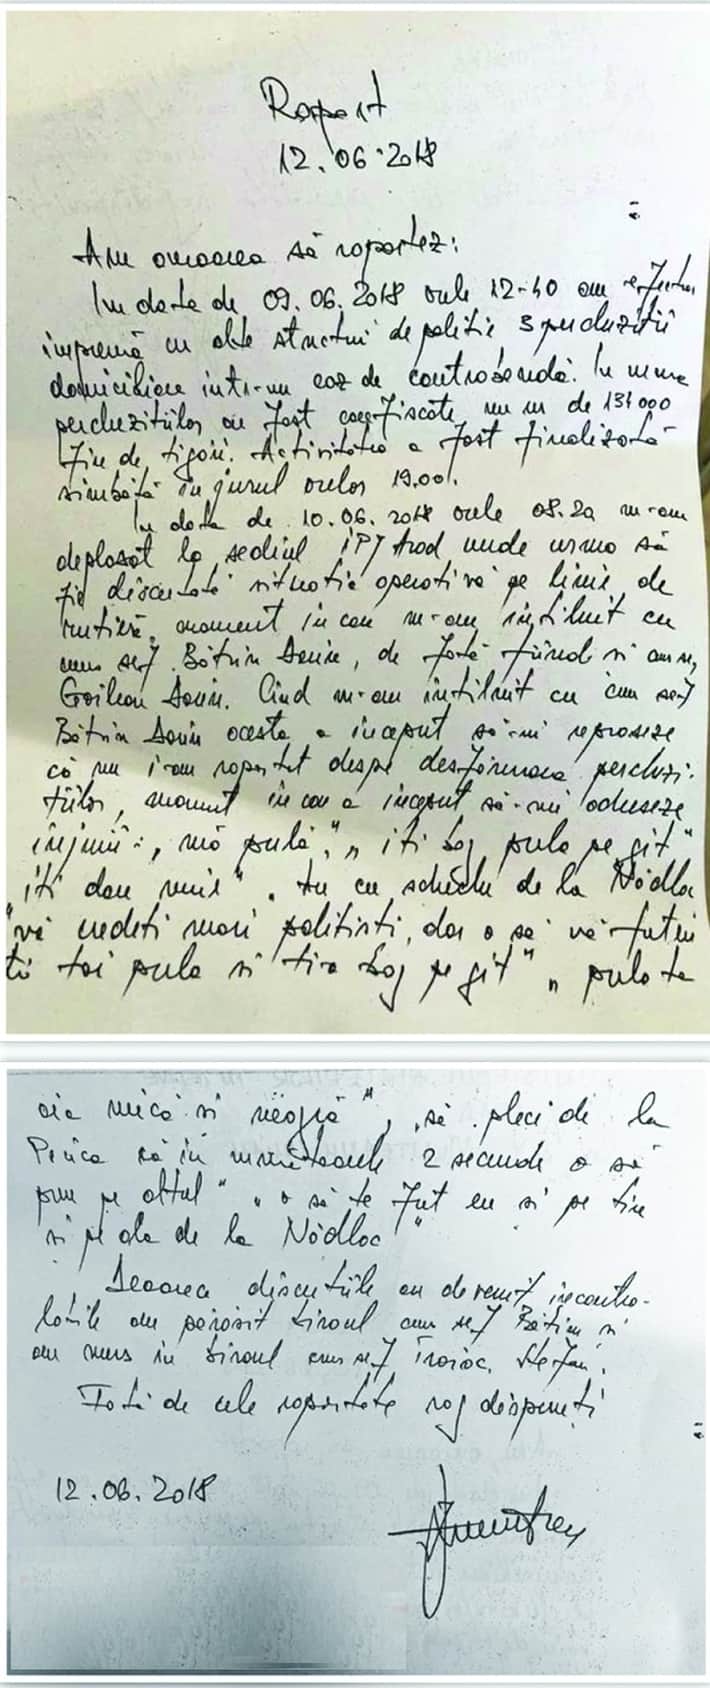 Raport
12.06.2018
Am onoarea să raportez:
În data de 09.06.2018 orele 12-40 am efectuat
împreună cu alte structuri de poliție 3 percheziții
domiciliare într-un caz de contrabandă. În urma
perchezițiilor au fost confiscate un nr de 134000
fire de țigări. Activitatea a fost finalizată
sîmbătă în jurul orelor 19.00.
În data de 10.06.2018 orele 08.20 m-am
deplasat la sediul IPJ Arad unde urma să
fie discutată situația operativă pe linie de
rutieră, moment în care m-am întîlnit cu
cms șef Bătrîn Sorin, de față fiind și cms
Goilean Sorin. Cînd m-am întîlnit cu cms șef
Bătrîn Sorin acesta a început să-mi reproșeze
că nu i-am raportat despre desfășurarea perchezi-
țiilor, moment în care a început să-mi adreseze
injurii: „mă pulă", „îți bag pula pe gît"
"îți dau muie". tu cu schielu de la Nădlac
"vă credeți mari polițiști, dar o să vă futeți
ți tai pula și ți-o bag pe gît" „pula ta
aia mică și neagră", „să pleci de la
Peica că în următoarele 2 secunde o să
pun pe altul" „o să te fut eu și pe tine
și pe ala de la Nădlac"
Deoarece discuțiile au devenit incontro-
labile am părăsit biroul cms șef Bătrîn și
am mers în biroul cms șef Troioc Ștefan.
Față de cele raportate rog dispuneți
12.06.2018